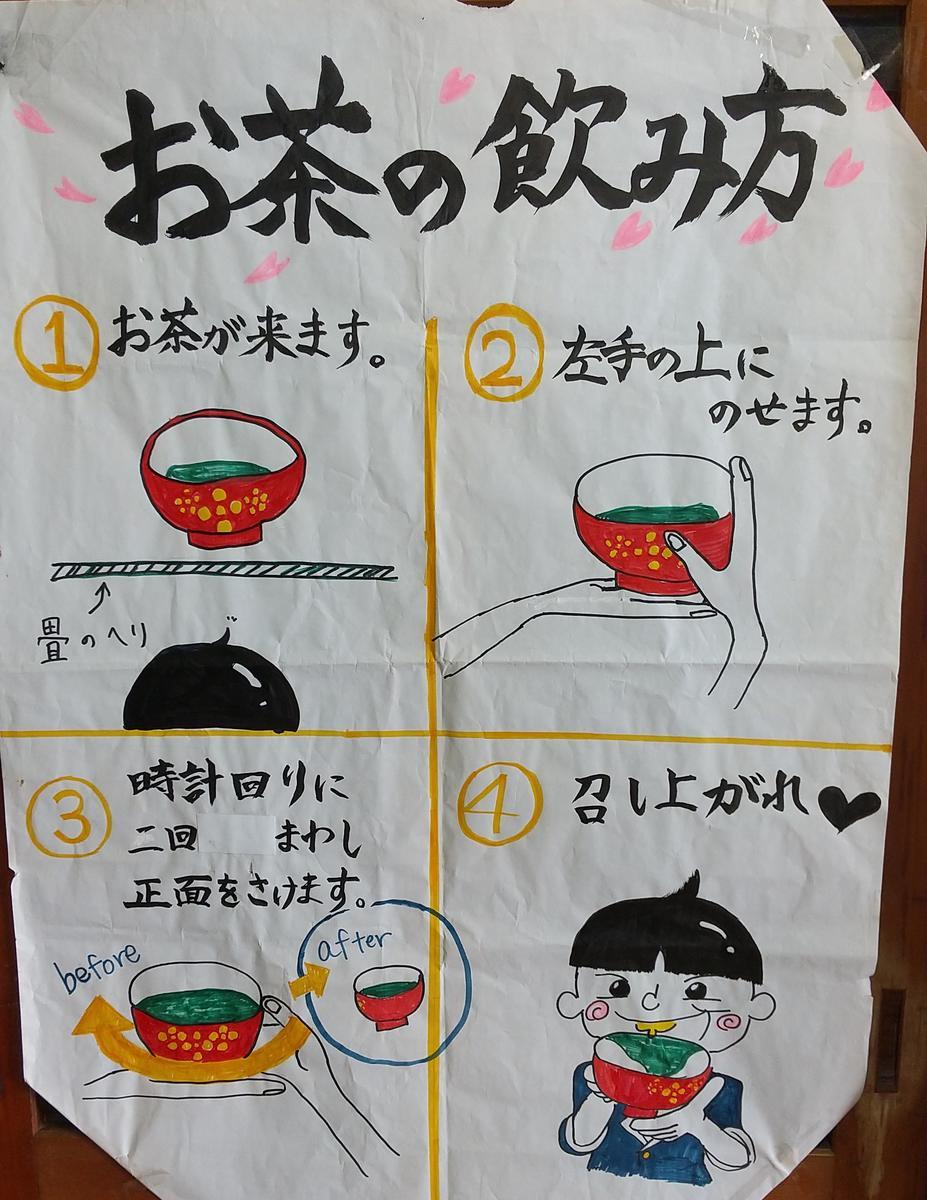 お茶の飲み方
① お茶が来ます。
畳のへり
② 左手の上に
のせます。
③ 時計回りに
二回 まわし
正面をさけます。
before
after
④ 召し上がれ♥